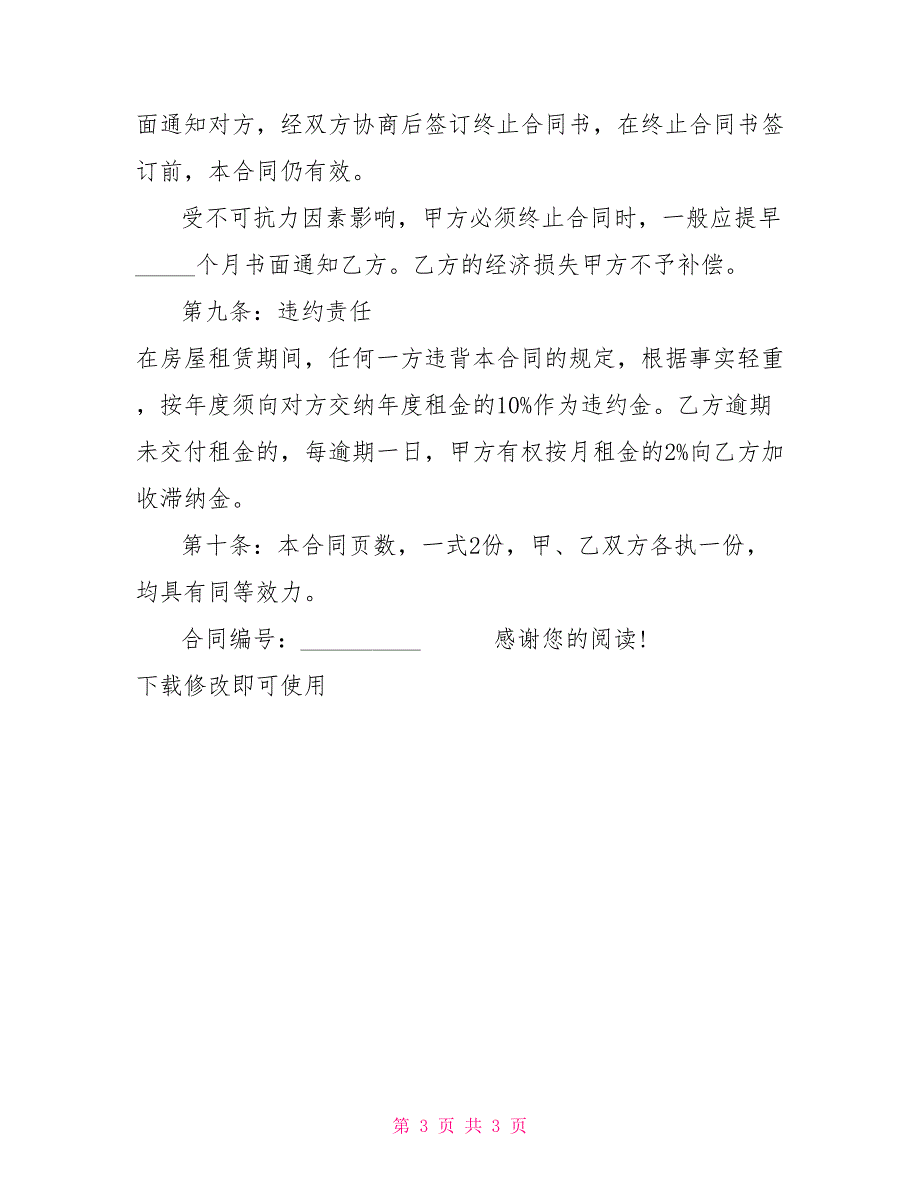 面通知对方，经双方协商后签订终止合同书，在终止合同书签
订前，本合同仍有效。
受不可抗力因素影响，甲方必须终止合同时，一般应提早
_____个月书面通知乙方。乙方的经济损失甲方不予补偿。
第九条：违约责任
在房屋租赁期间，任何一方违背本合同的规定，根据事实轻重
，按年度须向对方交纳年度租金的10%作为违约金。乙方逾期
未交付租金的，每逾期一日，甲方有权按月租金的2%向乙方加
收滞纳金。
第十条：本合同页数，一式2份，甲、乙双方各执一份，
均具有同等效力。
合同编号：__________ 感谢您的阅读!
下载修改即可使用
第 3 页 共 3 页